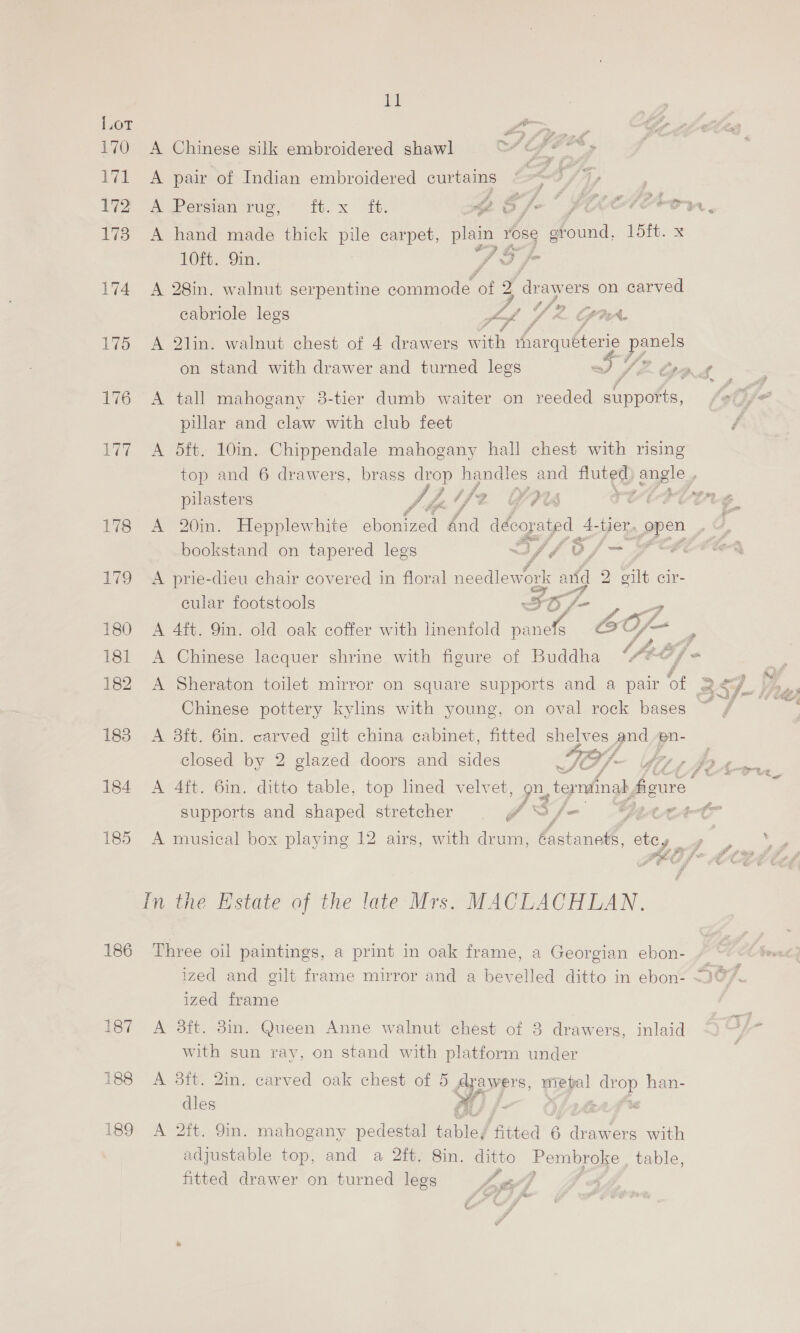 11
LOT
170 A Chinese silk embroidered shawl
171 A pair of Indian embroidered curtains
172 A Persian rug, ft. x ft.
173 A hand made thick pile carpet, plain rose ground, 15ft. x
10ft. 9in. 75/-
174 A 28in. walnut serpentine commode of 2 drawers on carved
cabriole legs
175 A 21in. walnut chest of 4 drawers with marqueterie panels
on stand with drawer and turned legs
176 A tall mahogany 3-tier dumb waiter on reeded supports,
pillar and claw with club feet
177 A 5ft. 10in. Chippendale mahogany hall chest with rising
top and 6 drawers, brass drop handles and fluted angle
pilasters
178 A 20in. Hepplewhite ebonized and decorated 4-tier, open
bookstand on tapered legs
179 A prie-dieu chair covered in floral needlework and 2 gilt cir-
cular footstools 30/-
180 A 4ft. 9in. old oak coffer with linenfold panels 60/-
181 A Chinese lacquer shrine with figure of Buddha
182 A Sheraton toilet mirror on square supports and a pair of
Chinese pottery kylins with young, on oval rock bases
183 A 3ft. 6in. carved gilt china cabinet, fitted shelves and en-
closed by 2 glazed doors and sides
184 A 4ft. 6in. ditto table, top lined velvet, on terminal figure
supports and shaped stretcher
185 A musical box playing 12 airs, with drum, castanets, etc,
In the Estate of the late Mrs. MACLACHLAN.
186 Three oil paintings, a print in oak frame, a Georgian ebon-
ized and gilt frame mirror and a bevelled ditto in ebon-
ized frame
187 A 3ft. 3in. Queen Anne walnut chest of 3 drawers, inlaid
with sun ray, on stand with platform under
188 A 3ft. 2in. carved oak chest of 5 drawers, metal drop han-
dles
189 A 2ft. 9in. mahogany pedestal table, fitted 6 drawers with
adjustable top, and a 2ft. 8in. ditto Pembroke table,
fitted drawer on turned legs